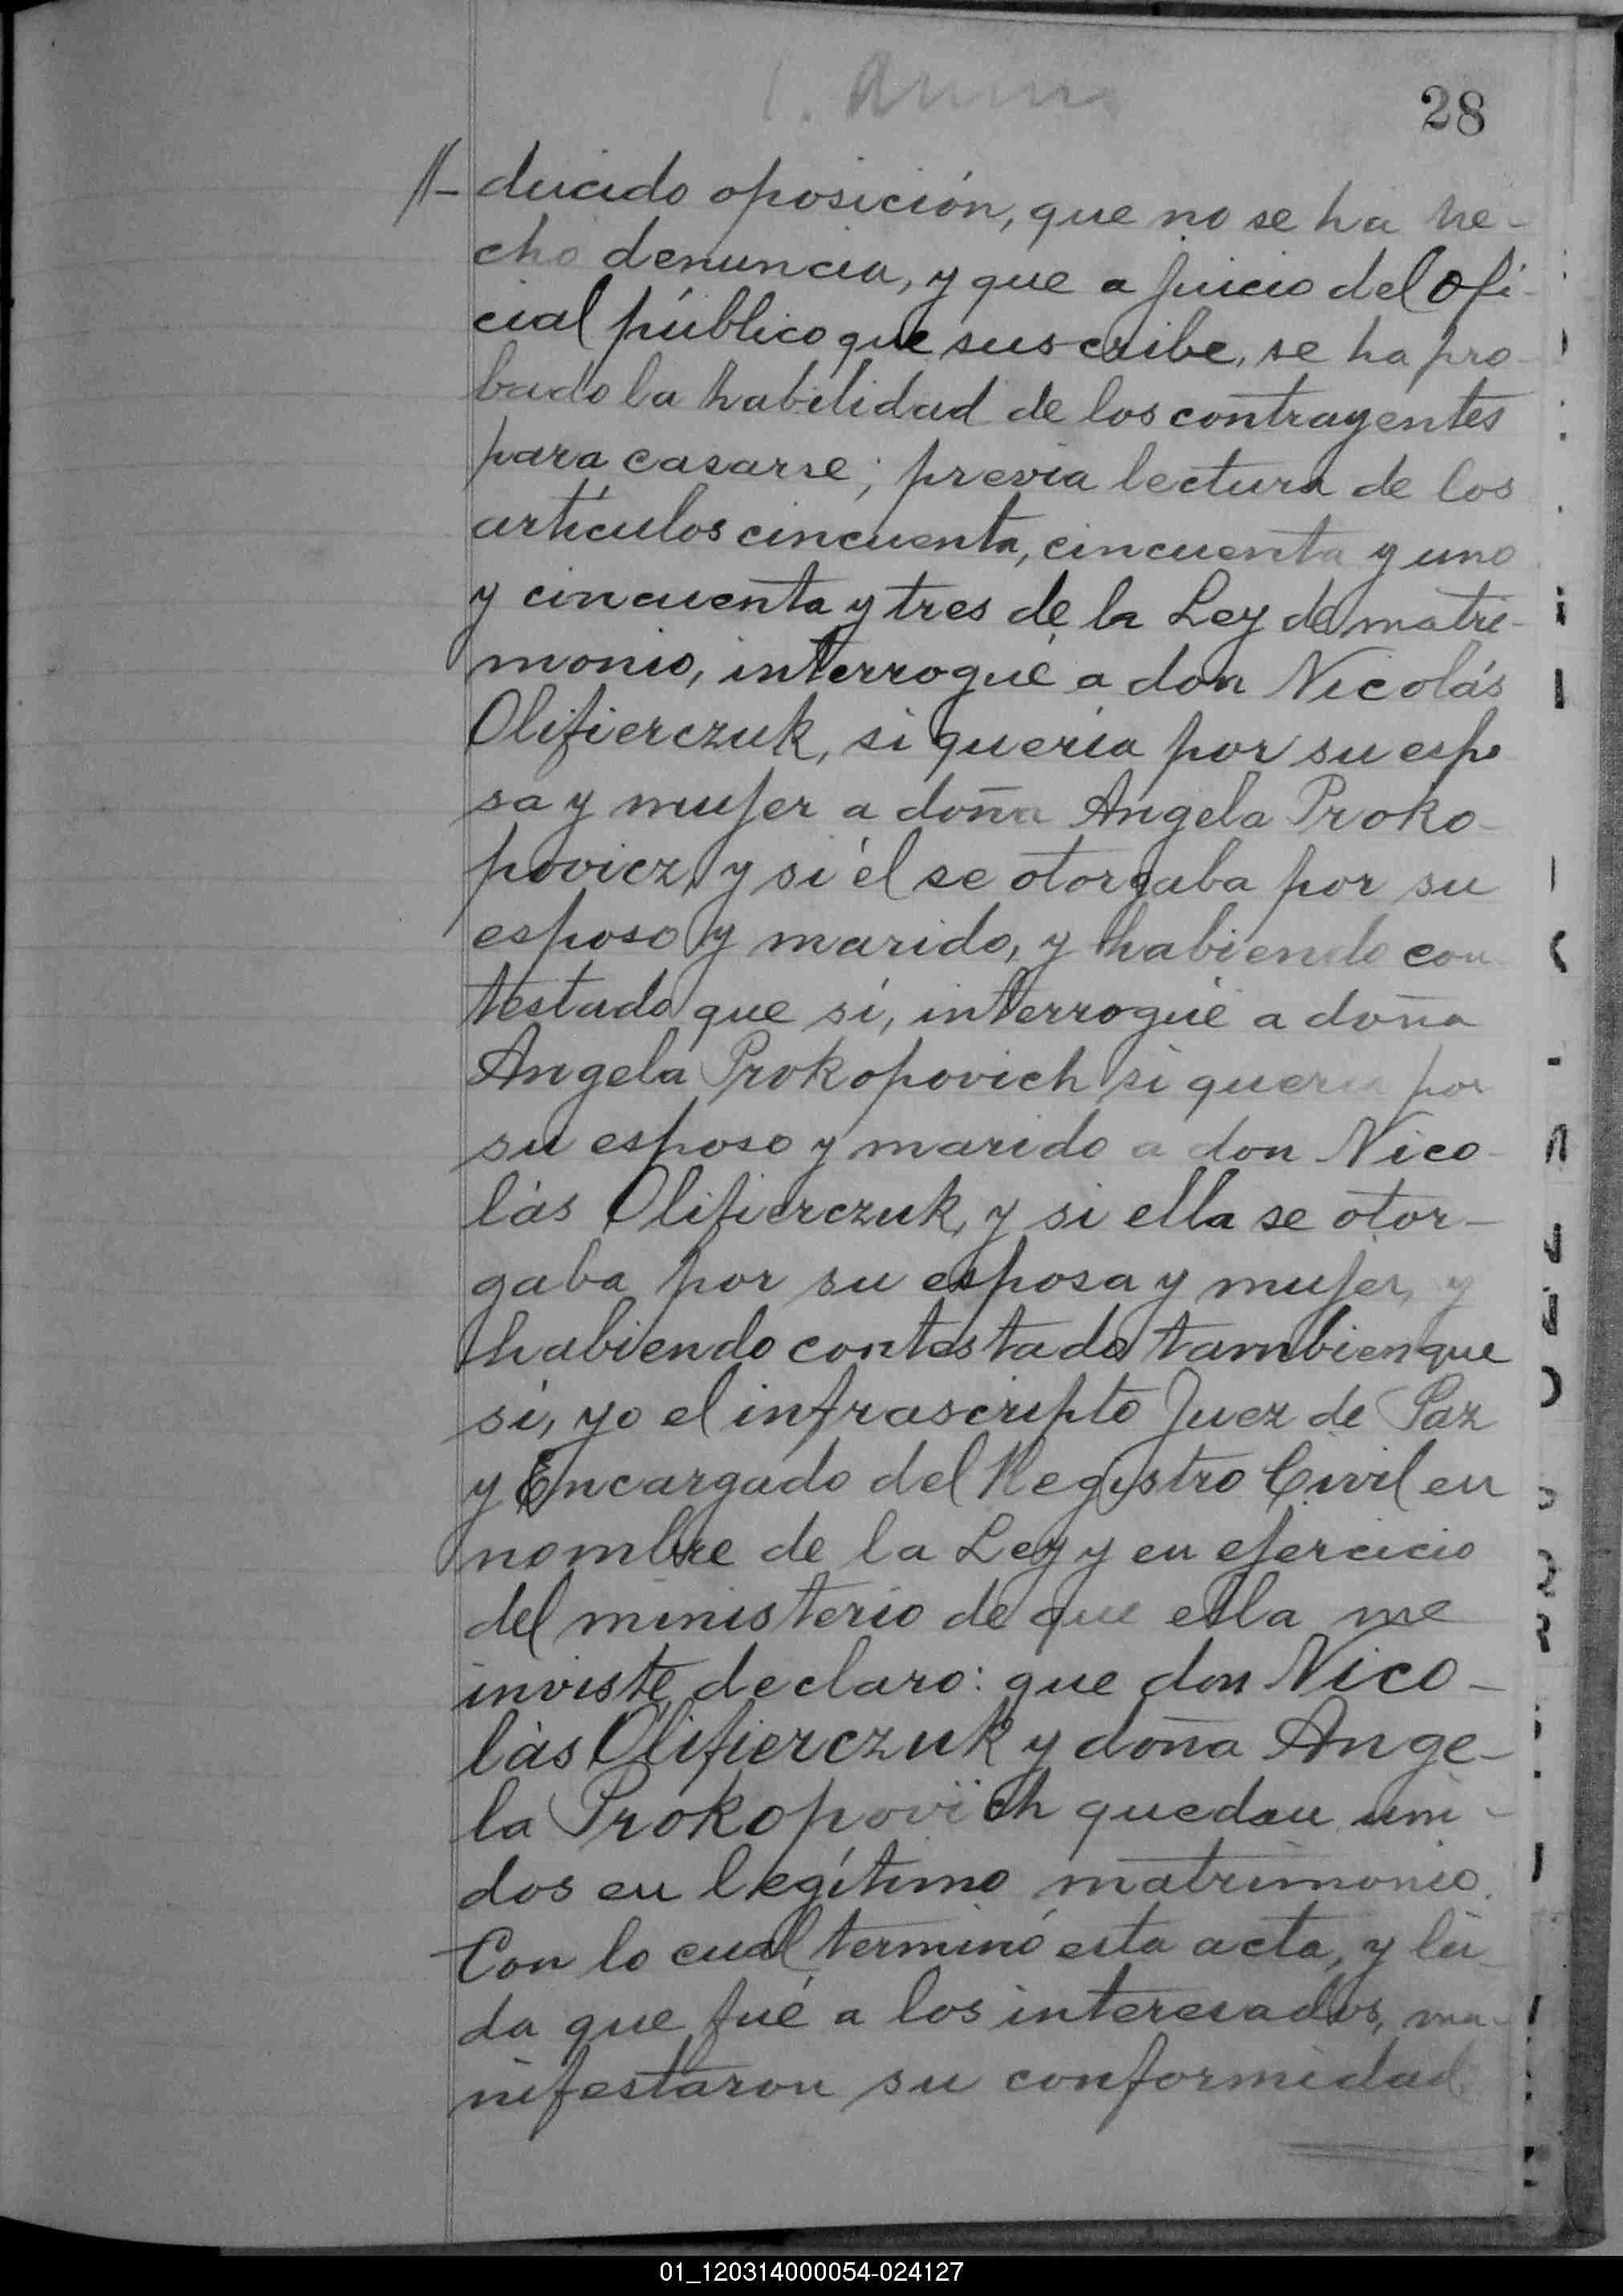 28
//- ducido oposición, que no se ha he-
cho denuncia, y que a juicio del Ofi-
cial público que suscribe, se ha pro-
bado la habilidad de los contrayentes
para casarse; previa lectura de los
artículos cincuenta, cincuenta y uno
y cincuenta y tres de la Ley de matri-
monio, interrogué a don Nicolás
Olifierczuk, si quería por su espo
sa y mujer a doña Angela Proko-
povicz, y si él se otorgaba por su
esposo y marido, y habiendo con
testado que sí, interrogué a doña
Angela Prokopovich si quería por
su esposo y marido a don Nico-
lás Olifierczuk, y si ella se otor-
gaba por su esposa y mujer, y
habiendo contestado tambien que
sí, yo el infrascripto Juez de Paz
y Encargado del Registro Civil en
nombre de la Ley y en ejercicio
del ministerio de que ella me
inviste declaro: que don Nico-
lás Olifierczuk y doña Ange-
la Prokopovich quedan uni-
dos en legítimo matrimonio.
Con lo cual terminó esta acta, y leí-
da que fué a los interesados, ma-
nifestaron su conformidad
01_120314000054-024127